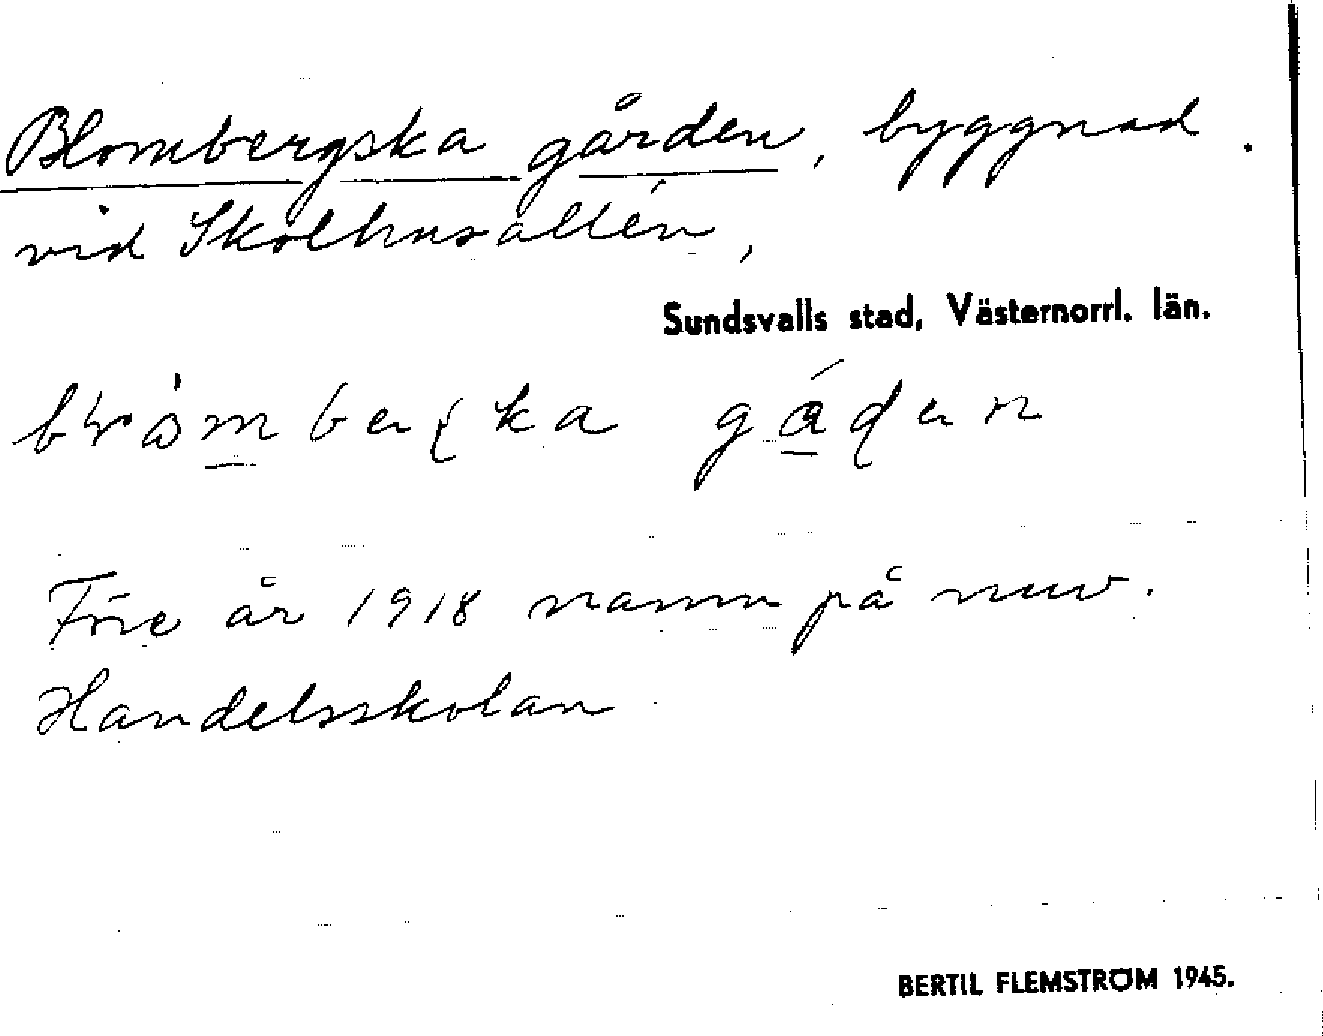 Blombergska gården, byggnad
vid Skolhusallén,
Sundsvalls stad, Västernorrl. län.
Före år 1918 namn på nuv.
Handelsskolan
BERTIL FLEMSTRÖM 1945.